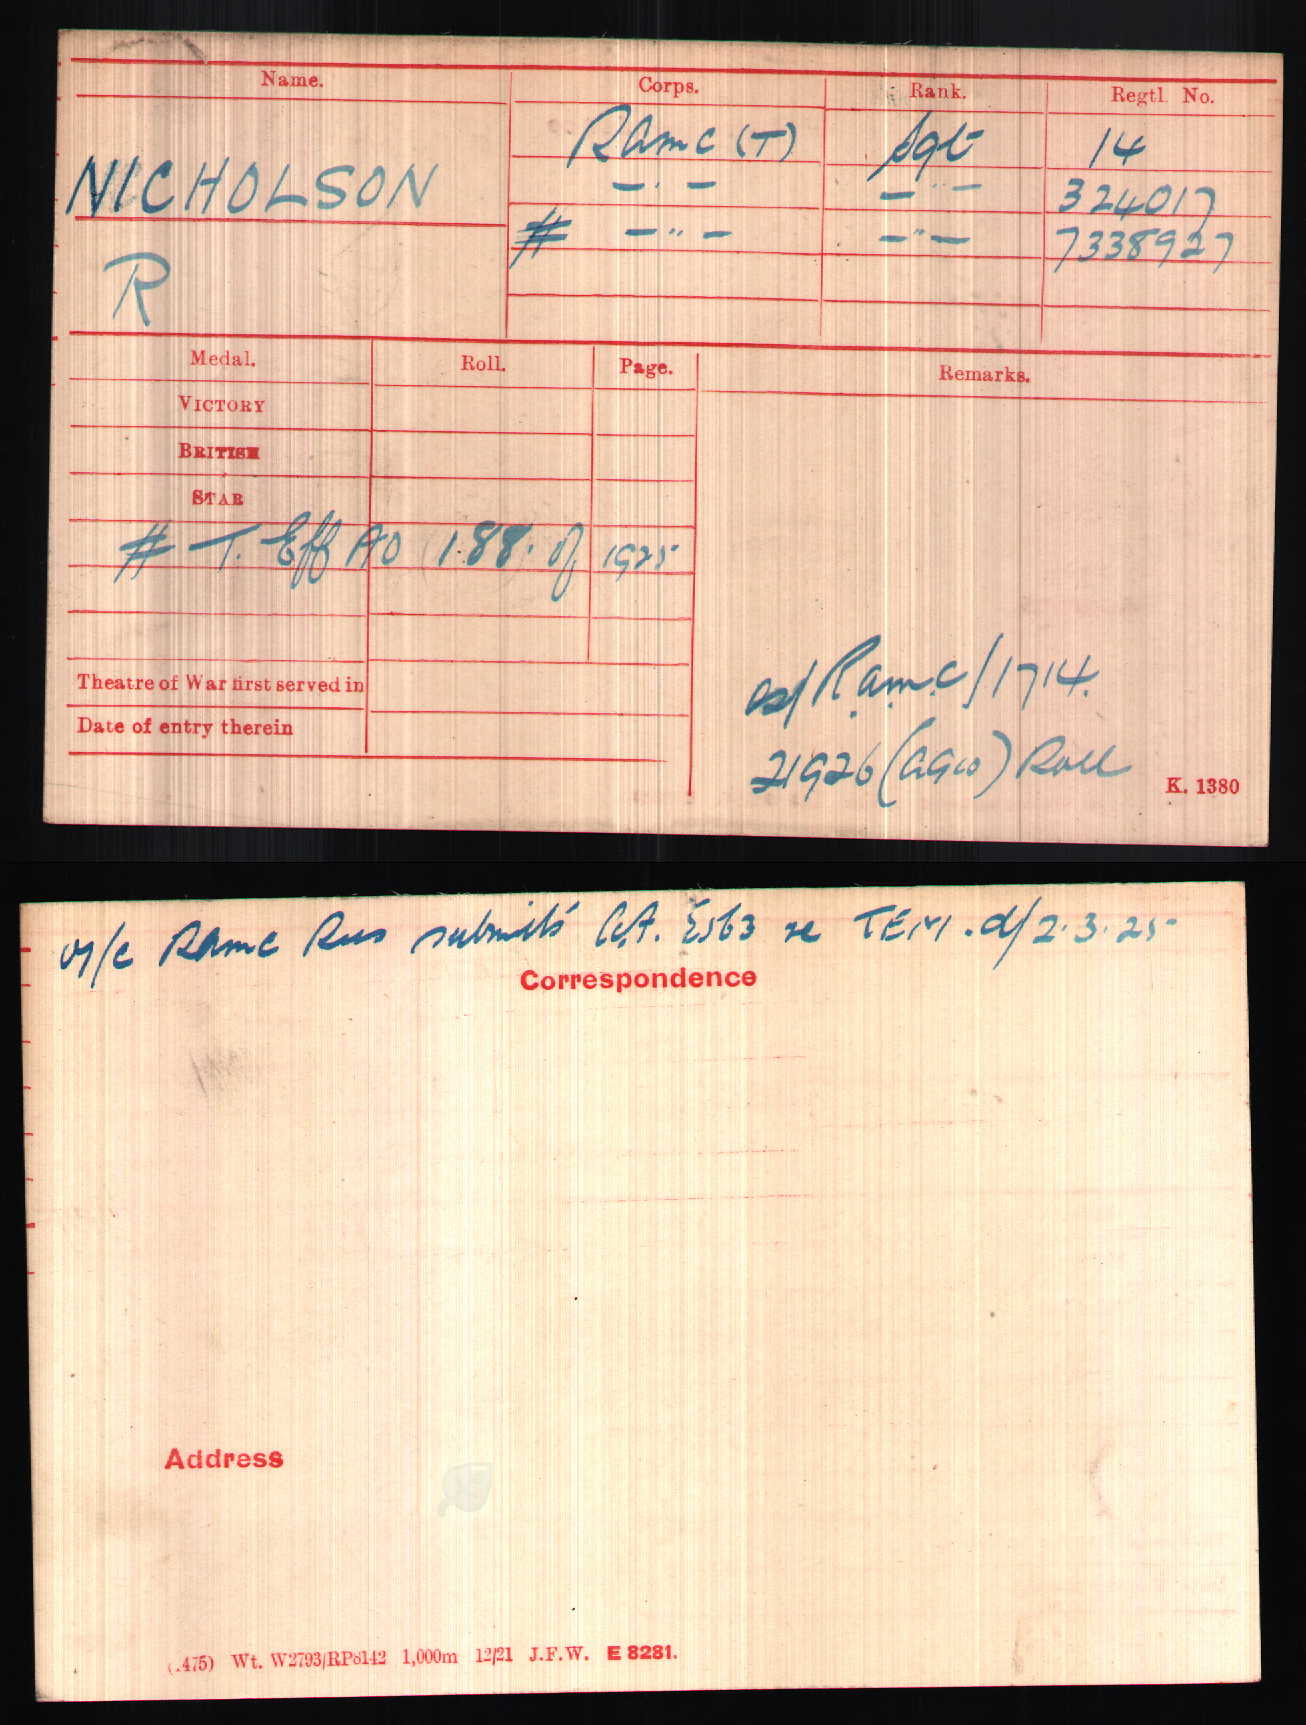 Name. Corps. Rank. Regtl. No.
NICHOLSON RAMC (T) Sgt 14
— " — — " — 324017
R # — " — — " — 7338927
Medal. Roll. Page. Remarks.
VICTORY
BRITISH
STAR
# T. Eff AO 188 of 1925
Theatre of War first served in
Date of entry therein
RAMC/1714.
21926 Roll
K. 1380
o/c RAMC Rec submits E563 re TEM. d/2.3.25
Correspondence
Address
(.475) Wt. W2793/RP8142 1,000m 12/21 J.F.W. E 8281.